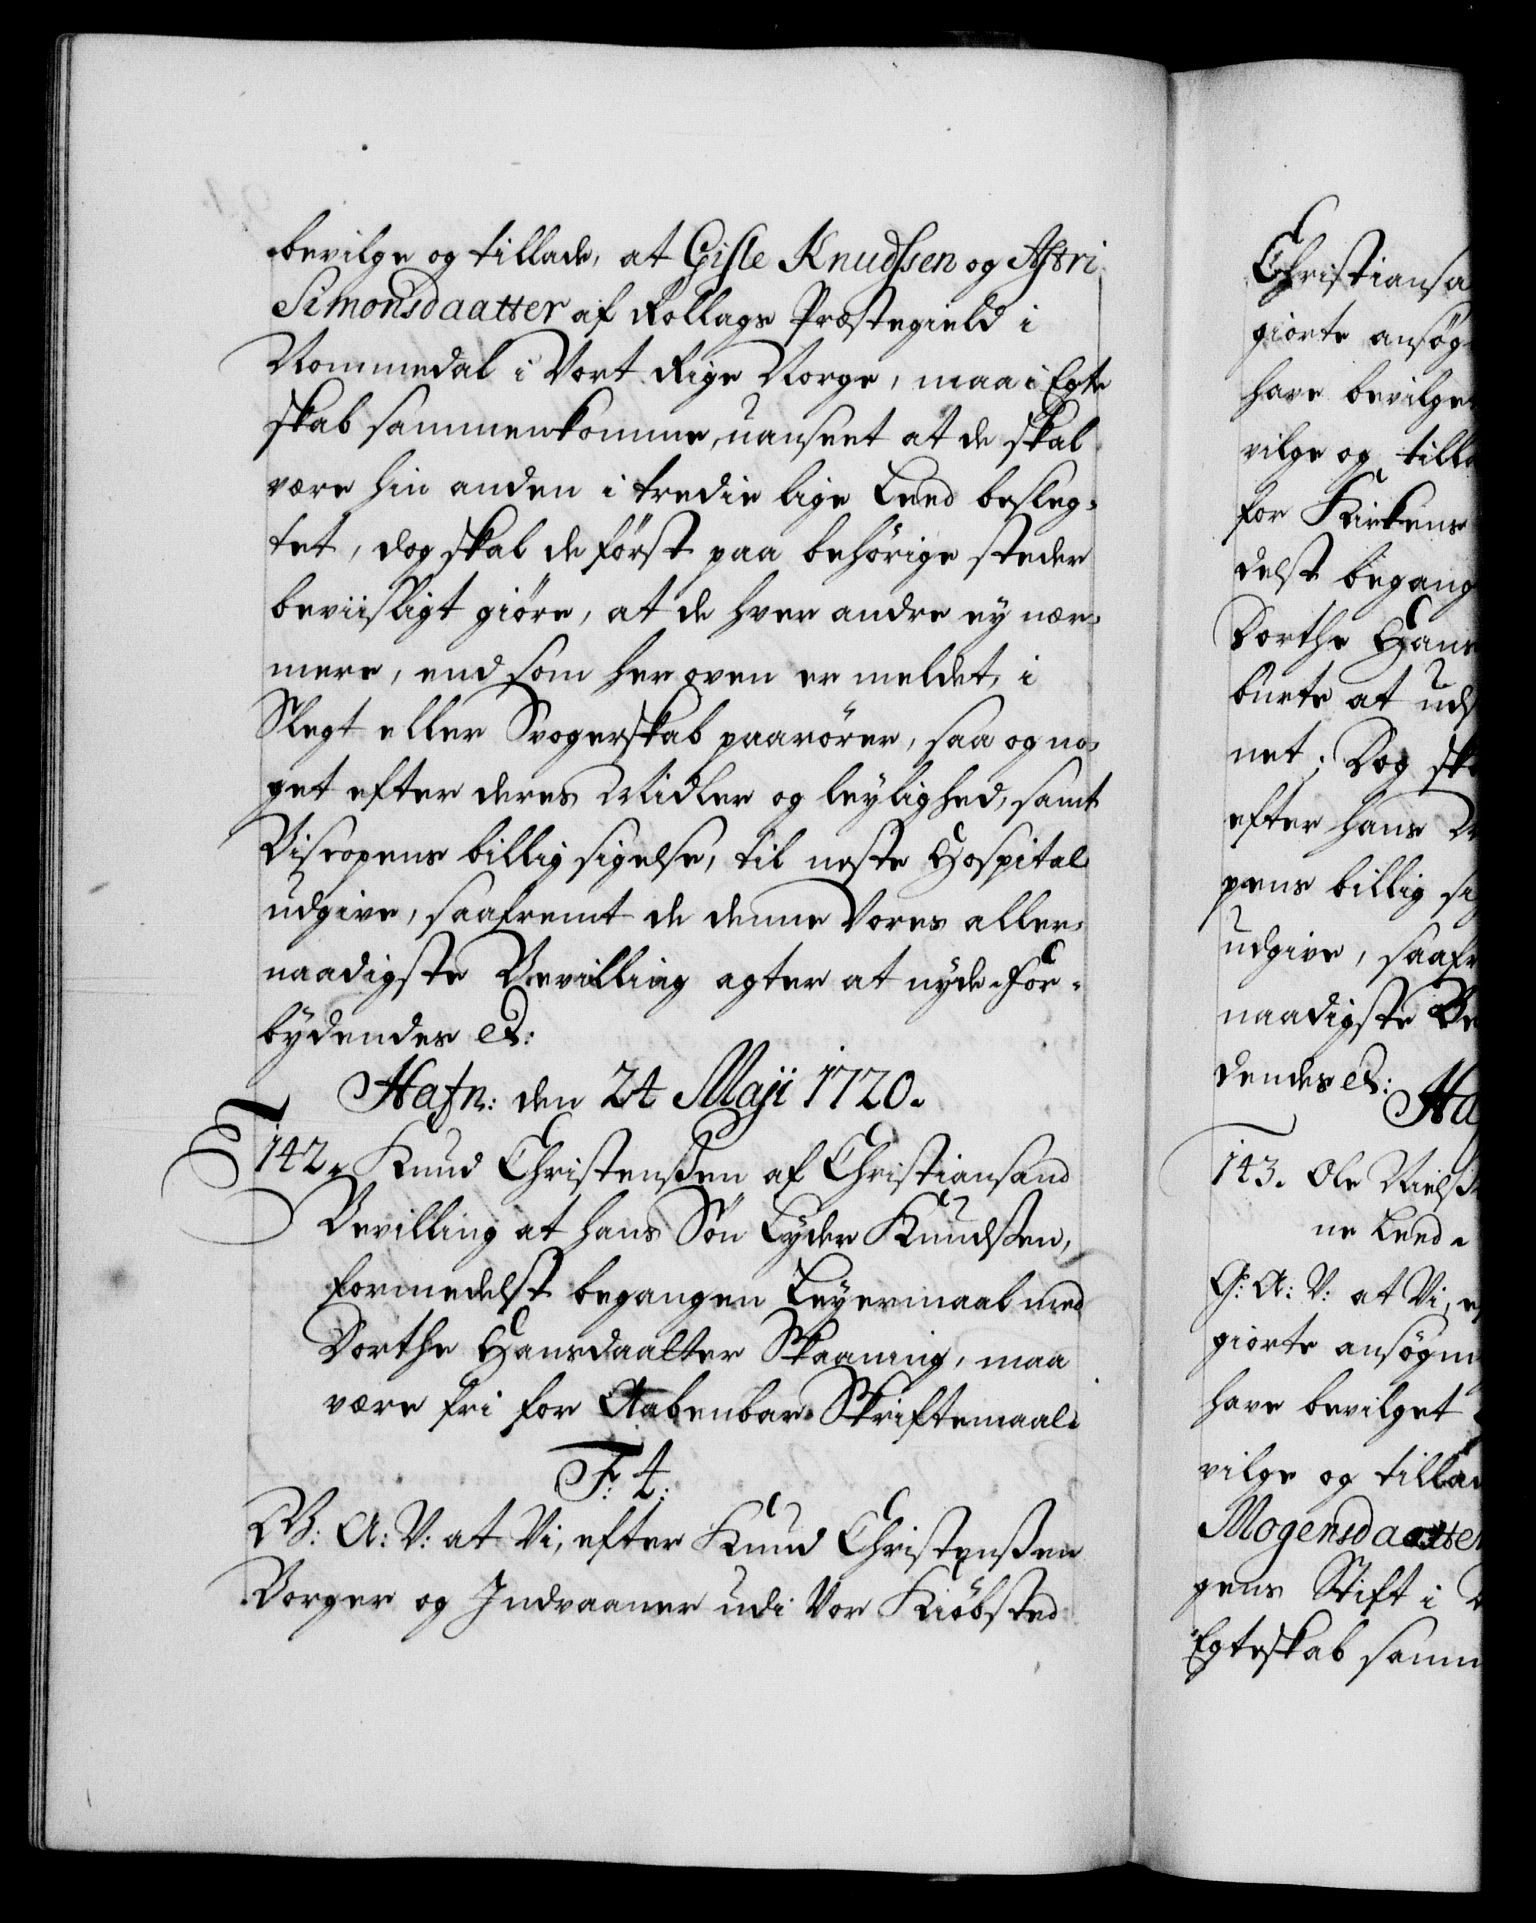 bevilge og tillade, at Gisle Knudssen og Astri
Simonsdaatter af Rollags Præstegield i
Nommedal i Vort Rige Norge, maa i Egte
skab sammenkomme, uanseet at de skal
være hin anden i tredie lige Leed besleg-
tet, dog skal de først paa behörige steder
beviisligt giøre, at de hver andre ey nær-
mere, end som her oven er meldet, i
Slegt eller Svogerskab paarörer, saa og no-
get efter deres Midler og leylighed, samt
Biscopens billig sigelse, til neste Hospital
udgive, saafremt de denne Vores aller-
naadigste Bevilling agter at nyde. For-
bydendes etc:
Hafn: den 24 Maji 1720.
142. Knud Christenßen af Christiansand
Bevilling at hans Søn Lyder Knudsßen,
formedelst begangen Leyermaal med
Dorthe Hansdaatter Skaaning, maa
være fri for Aabenbare Skriftemaal.
F. 4.
G: A: V: at Vi, efter Knud Christenßen
Borger og Indvaaner udi Vor Kiöbsted
Christiansa
giorte ansøg
have bevilge
vilge og tilla
for Kirkens
delst begang
Dorthe Hans
burte at uds
net; Dog ska
efter hans
pens billig si
udgive, saafr
naadigste Be
dendes etc: Ha
143. Ole Nielß
ne Leed.
G: A: V: at Vi, ef
giorte ansøgn
have bevilget
vilge og tillad
Mogensdaatter
gens Stift i
Egteskab samm